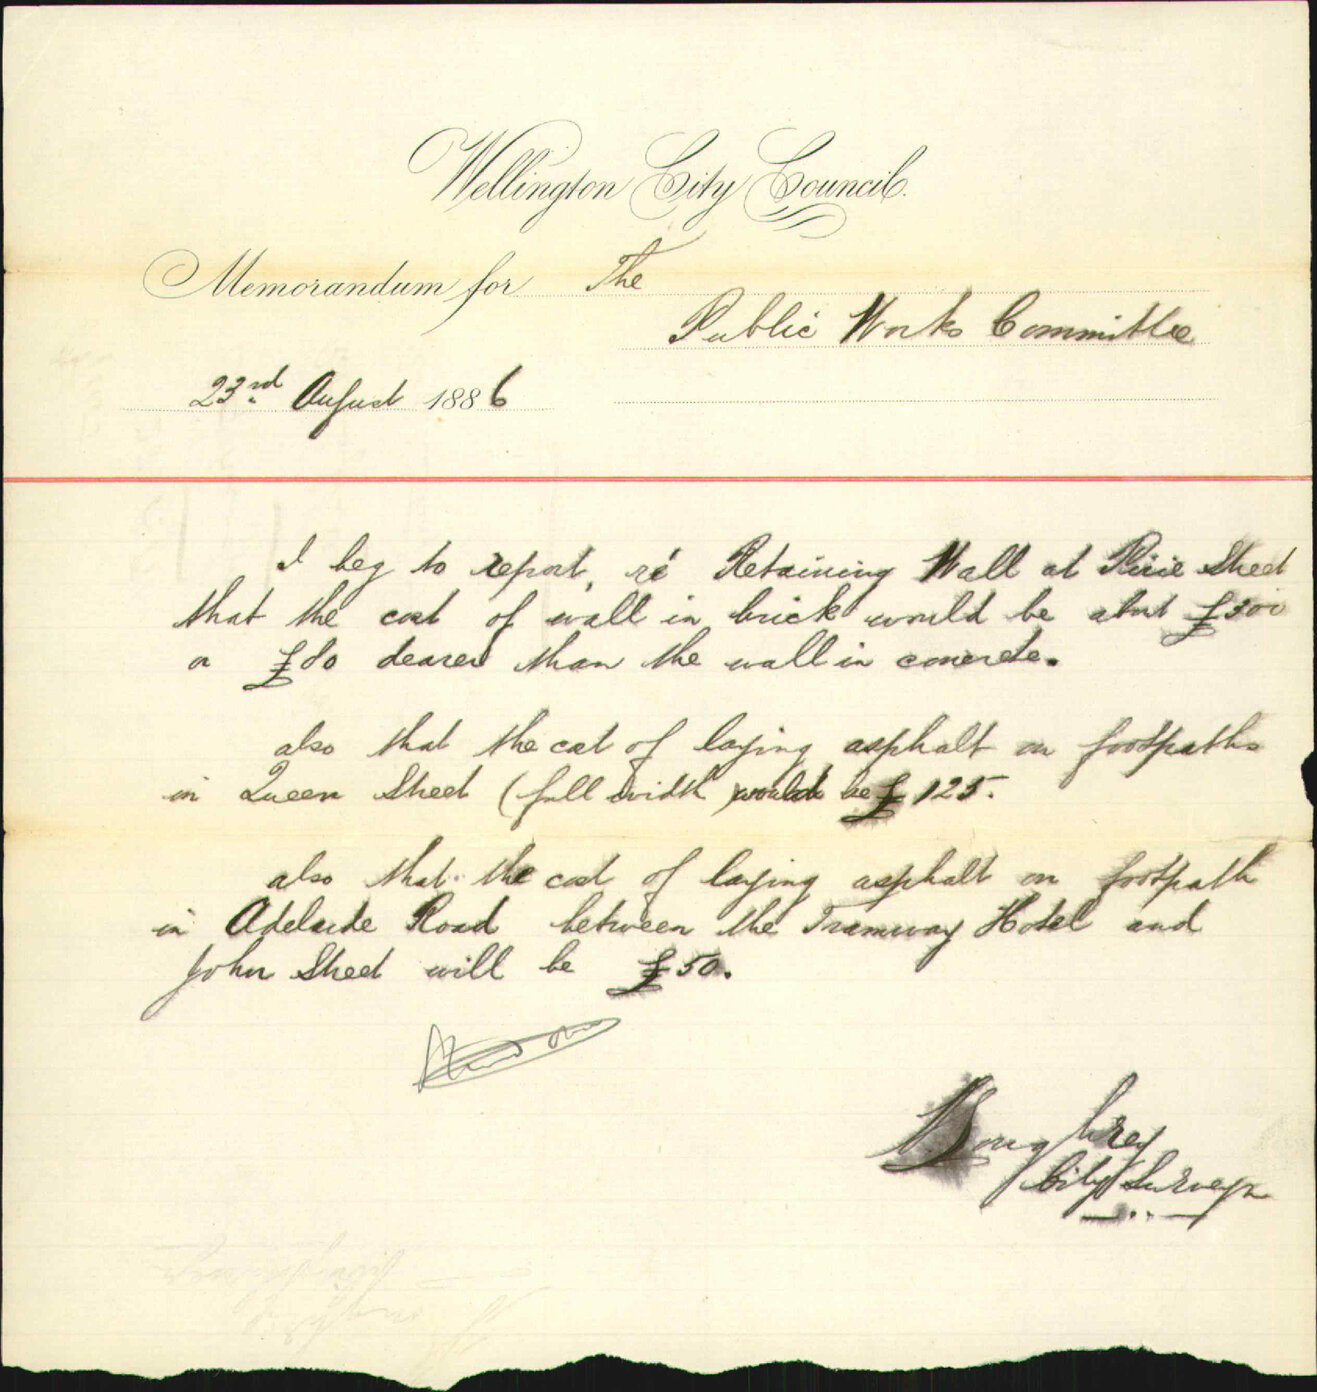 Wellington City Council.
Memorandum for The
Public Works Committee
23rd August 1886
I beg to report, ré Retaining Wall at Pirie Street
that the cost of wall in brick would be about £300
or £80 dearer than the wall in concrete.
also that the cost of laying asphalt on footpaths
in Queen Street (full width) would be £125.
also that the cost of laying asphalt on footpath
in Adelaide Road between the Tramway Hotel and
John Street will be £50.
City Surveyor